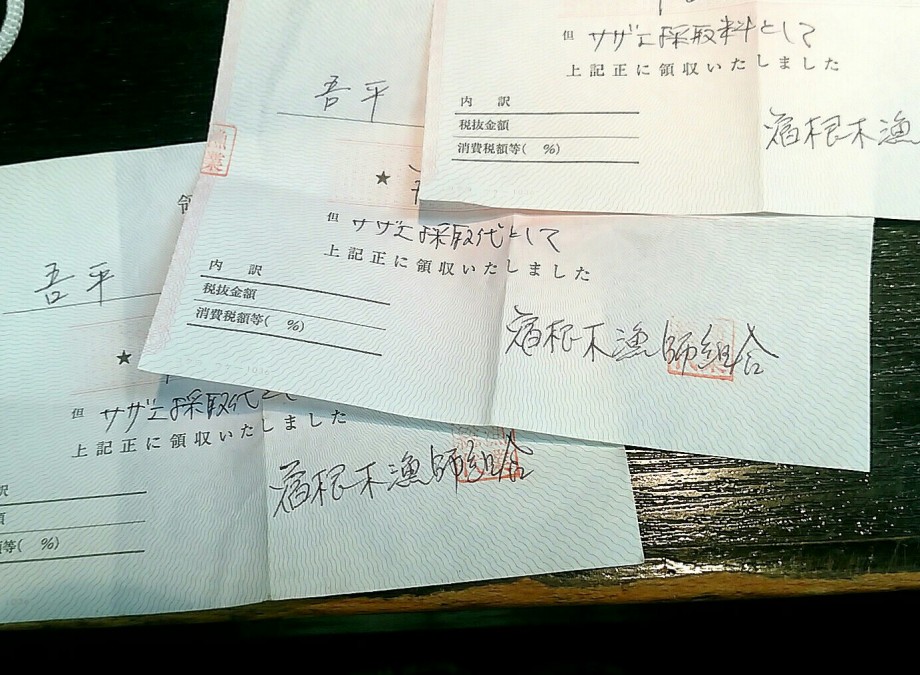 但 サザエ採取料として
上記正に領収いたしました
内 訳
税抜金額
消費税額等( %)
宿根木漁
吾平
漁業
★
但 サザエ採取代として
上記正に領収いたしました
内 訳
税抜金額
消費税額等( %)
宿根木漁師組合
領
吾平
★
但 サザエ採取代として
上記正に領収いたしました
訳
額
等( %)
宿根木漁師組合